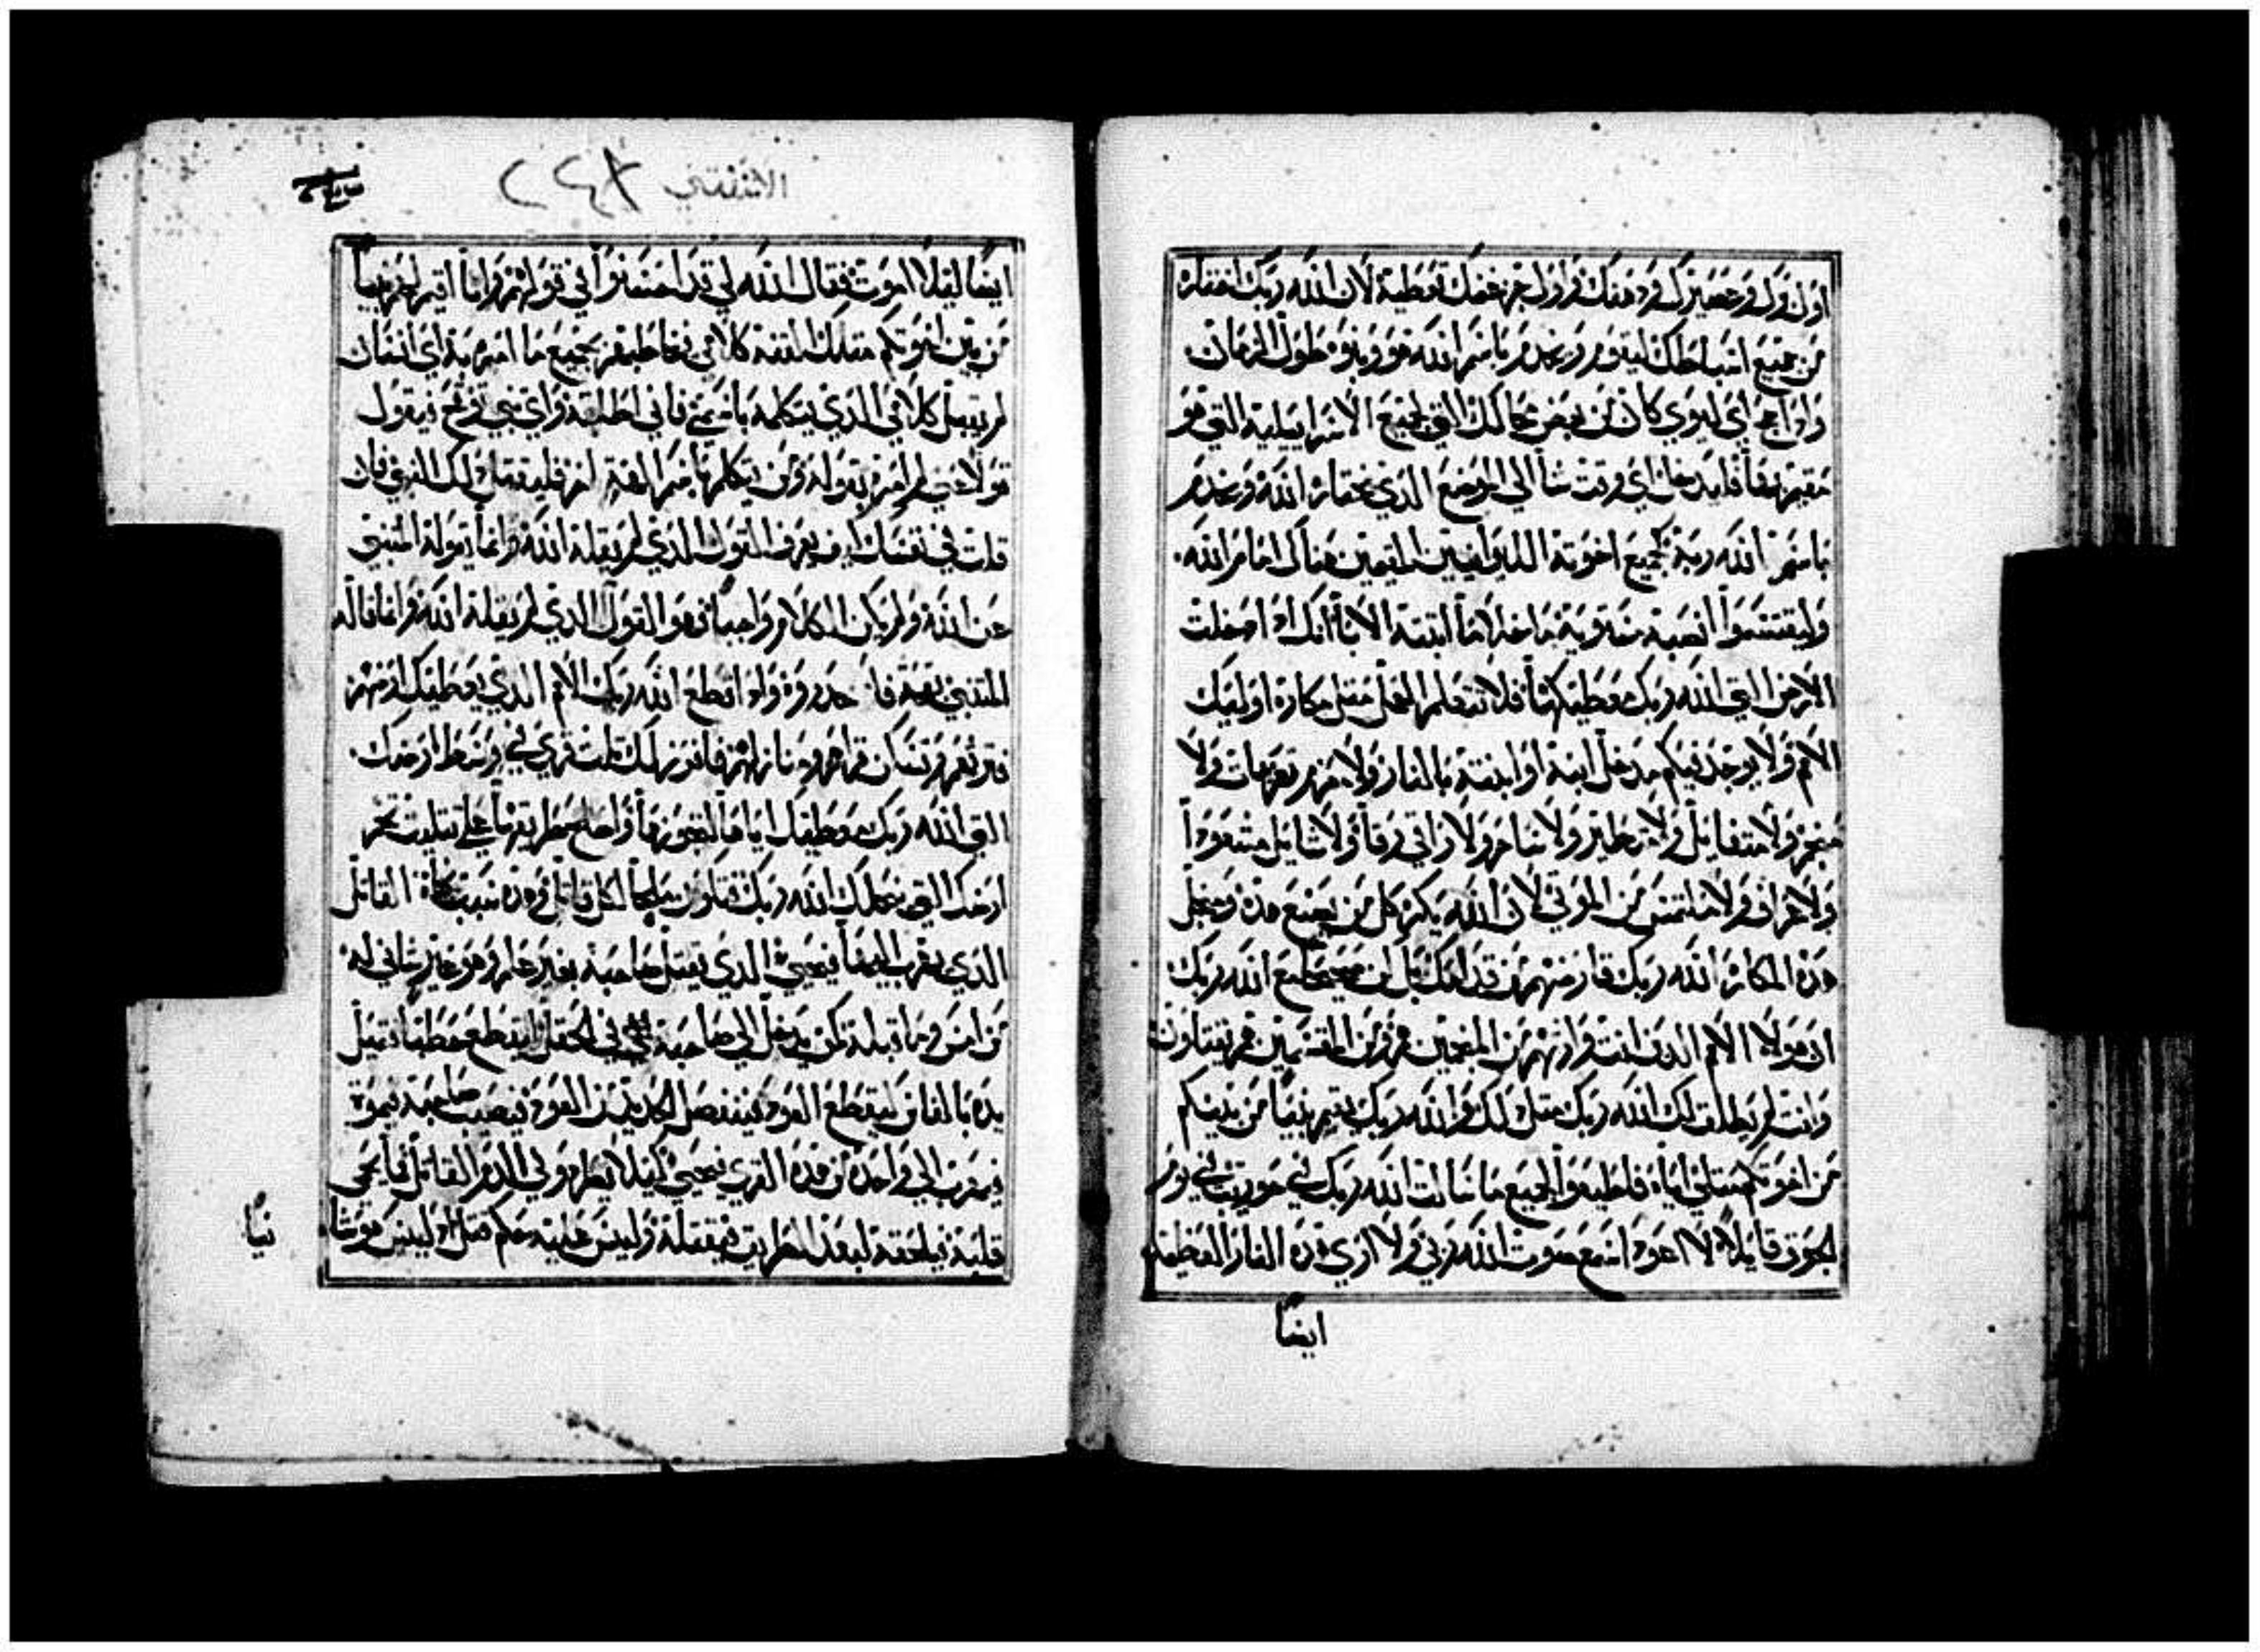 اولدول وعصيرك ودهنك واول جز غنمك تعطيه لان الله ربك اختاره
من جميع اسباطك ليقوم ويخدم باسم الله هو وبنوه طول الزمان
واذا جا اي ليوي كان من بعض محالك التي لجميع الاسراييلية التي هو
مقيم بها فليدخل اي وقت شا الي الموضع الذي يختاره الله ويخدم
باسم الله ربه كجميع اخوته الليوانيين المقيمين هناك امام الله
وليقتسموا انصبة مستوية ما خلا ما ابتته الابا انك اذا دخلت
الارض التي الله ربك معطيكها فلا تتعلم العمل مثل مكاره اوليك
الامم ولا يوجد فيكم مدخل ابنه او ابنته بالنار ولا منهم تعرفات ولا
منجم ولا متفايل ولا متطير ولا ساحر ولا راقي رقا ولا سايل مشعوذا
ولا عراف ولا ملتمس من الموتي لان الله يكره كل من يصنع هذه ومجل
هذه المكاره الله ربك قارضهم من قدامك بل كن صحيحا مع الله ربك
ان هولا الامم الذين انت وارثهم من المنجمين هم ومن المقسمين هم يقبلون
وانت لم يطلق لك الله ربك مثل ذلك والله ربك يقيم نبيا من بينكم
من اخوتكم مثلي اياه فاطيعوا كجميع ما سالت الله ربك في حوريب في يوم
الجوق قايلا لا اعود اسمع صوت الله ربي ولا اري هذه النار العظيمة
ايضا
الاستثني ٢٤٨
ايضا ليلا اموت فقال الله لي قد احسنوا في قولهم وانا اقيم لهم نبيا
من بين اخوتكم مثلك القنه كلامي فيخاطبهم بجميع ما امره به اي انسان
لم يقبل كلامي الذي يتكلمه باسمي فاني اطلبه واي نبي توقح فيقول
قولا عني لم امره بقوله ومن يتكلم باسم الهة اخر فليقتل ذلك النبي فان
قلت في نفسك كيف يعرف القول الذي لم يقله الله وانما يقوله المتنبي
عن الله ولم يكن الكلام واجبا فهو القول الذي لم يقله الله وانما قاله
المتنبي بقحة فلا تحذروه واذا اقطع الله ربك الامم الذي يعطيك ارضهم
فترثهم وتسكن قراهم ومنازلهم فافرز لك ثلث قري في وسط ارضك
التي الله ربك معطيك اياها لتحوزها واصلح طريقها علي تثليث تخم
ارضك التي ينحلك الله ربك فتكون ملجا لكل قاتل وهذه سبب نجاة القاتل
الذي يهرب اليها فيحيي الذي يقتل صاحبه بغير علم وهو غير شاني له
من امس وما قبله كمن يدخل الي صاحبه في الحقل ليقطع حطبا فتميل
يده بالفاس ليقطع العود فينفصل الحديد من العود فيصيب صاحبه فيموت
فيهرب الي واحدة من هذه القري فيحيي كيلا يطرد ولي الدم القاتل لما يحمي
قلبه فيلحقه لبعد الطريق فيقتله وليس عليه حكم قتل اذ ليس هو شا
نيا